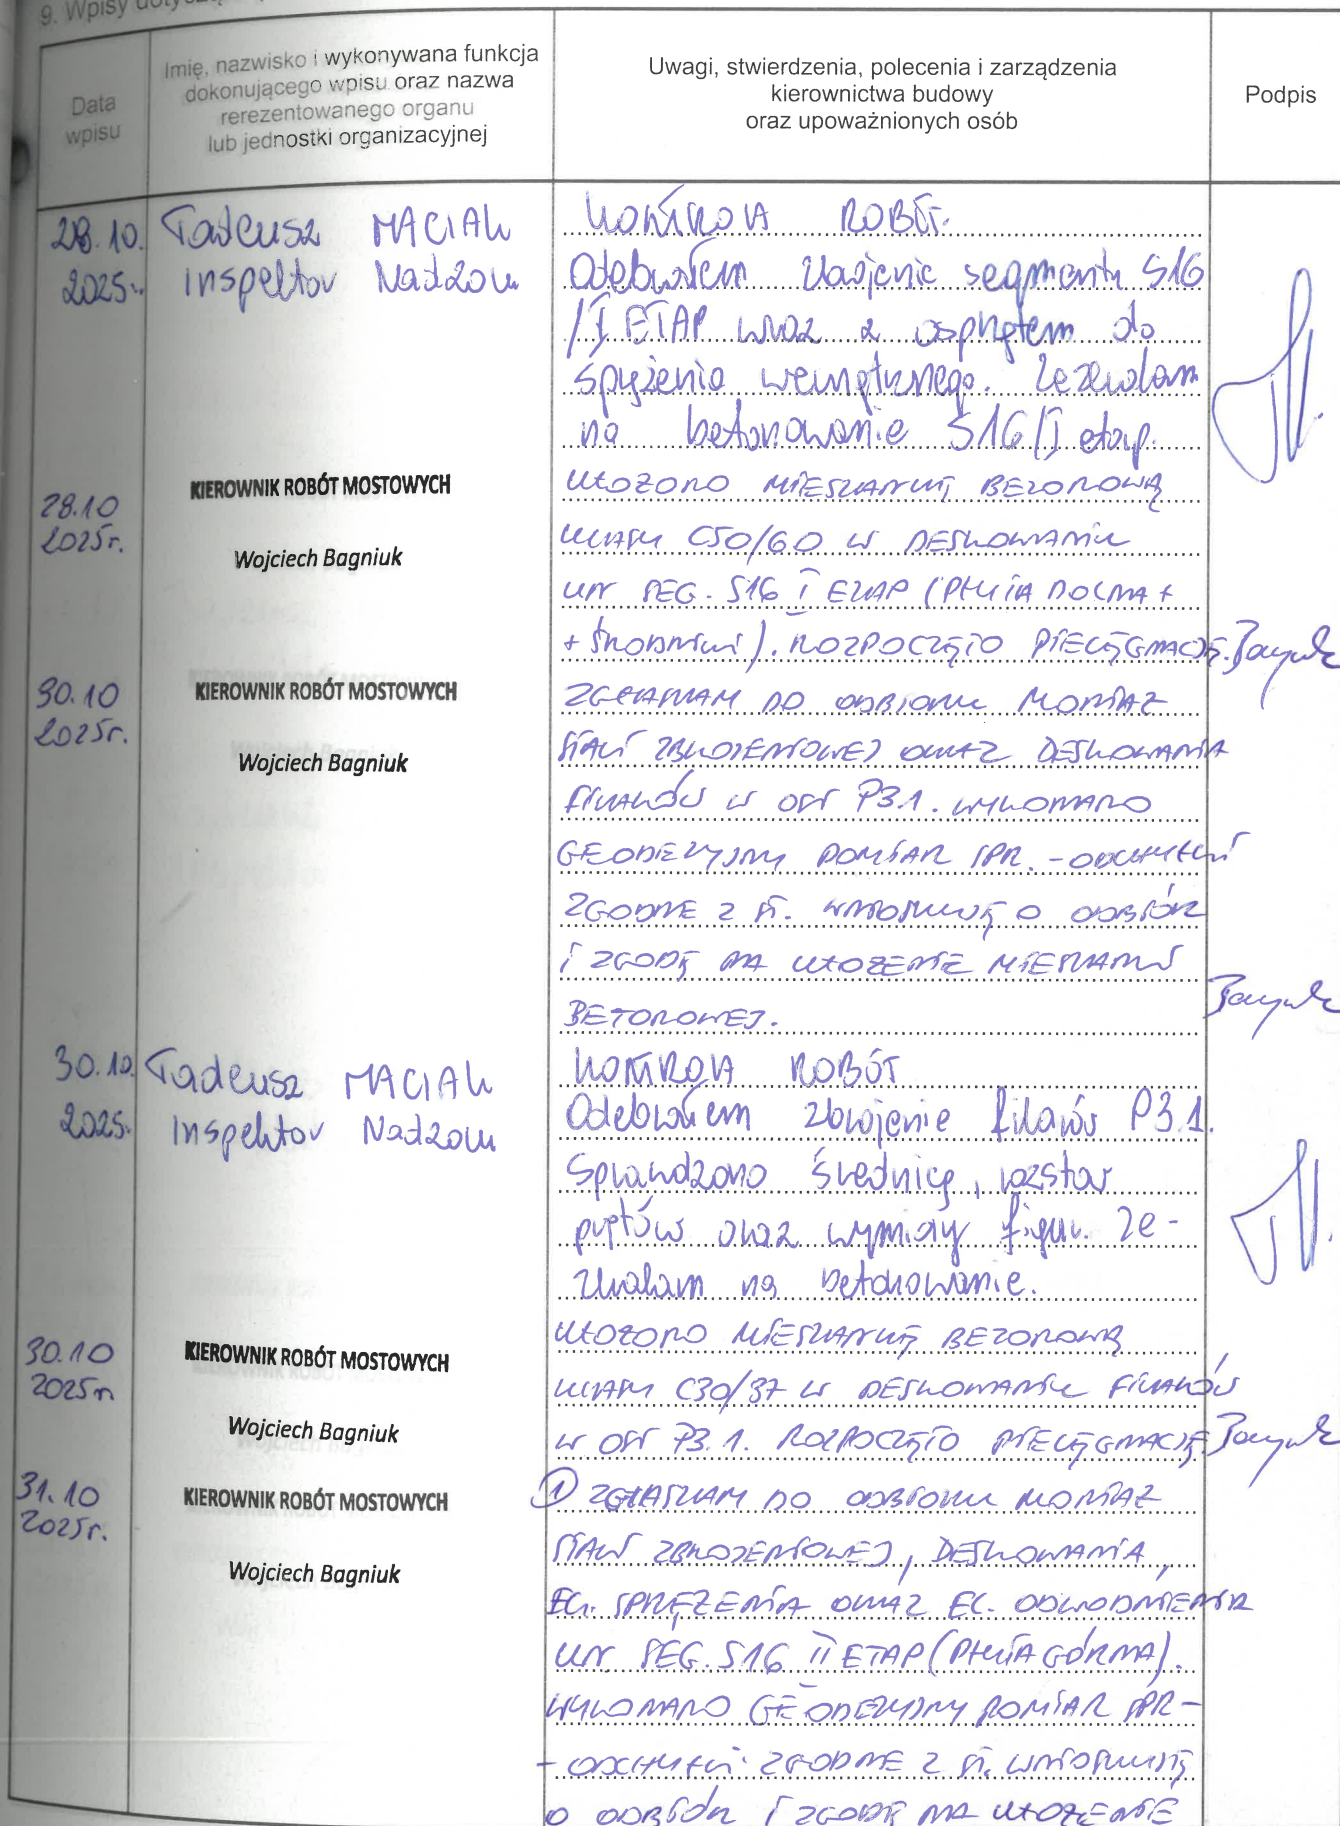 9. Wpisy
Data
wpisu
Imię, nazwisko i wykonywana funkcja
dokonującego wpisu oraz nazwa
rerezentowanego organu
lub jednostki organizacyjnej
Uwagi, stwierdzenia, polecenia i zarządzenia
kierownictwa budowy
oraz upoważnionych osób
Podpis
28.10.
2025r.
Tadeusz MACIAK
inspektor Nadzoru
KONTROLA ROBÓT.
Odebrałem zbrojenie segmentu S16
/I ETAP wraz z osprzętem do
sprężenia wewnętrznego. Zezwalam
na betonowanie S16/I etap.
28.10
2025r.
KIEROWNIK ROBÓT MOSTOWYCH
Wojciech Bagniuk
UŁOŻONO MIESZANKĘ BETONOWĄ
KLASY C50/60 W DESKOWANIU
UN SEG. S16 I ETAP (PŁYTA DOLNA +
+ ŚRODNIKI). ROZPOCZĘTO PIELĘGNACJĘ.
30.10
2025r.
KIEROWNIK ROBÓT MOSTOWYCH
Wojciech Bagniuk
ZGŁASZAM DO ODBIORU MONTAŻ
STALI ZBROJENIOWEJ ORAZ DESKOWANIA
FILARÓW W OSI P3.1. WYKONANO
GEODEZYJNY POMIAR SPR. - ODCHYŁKI
ZGODNE Z ST. WNIOSKUJĘ O ODBIÓR
I ZGODĘ NA UŁOŻENIE MIESZANKI
BETONOWEJ.
30.10.
2025.
Tadeusz MACIAK
inspektor Nadzoru
KONTROLA ROBÓT
Odebrałem zbrojenie filarów P3.1.
Sprawdzono średnicę, rozstaw
prętów oraz wymiary figur. Ze-
zwalam na betonowanie.
30.10
2025r
KIEROWNIK ROBÓT MOSTOWYCH
Wojciech Bagniuk
UŁOŻONO MIESZANKĘ BETONOWĄ
KLASY C30/37 W DESKOWANIU FILARÓW
W OSI P3.1. ROZPOCZĘTO PIELĘGNACJĘ.
31.10
2025r.
KIEROWNIK ROBÓT MOSTOWYCH
Wojciech Bagniuk
① ZGŁASZAM DO ODBIORU MONTAŻ
STALI ZBROJENIOWEJ, DESKOWANIA,
EL. SPRĘŻENIA ORAZ EL. ODWODNIENIA
UN SEG. S16 II ETAP (PŁYTA GÓRNA).
WYKONANO GEODEZYJNY POMIAR SPR -
- ODCHYŁKI ZGODNE Z ST. WNIOSKUJĘ
O ODBIÓR I ZGODĘ NA UŁOŻENIE